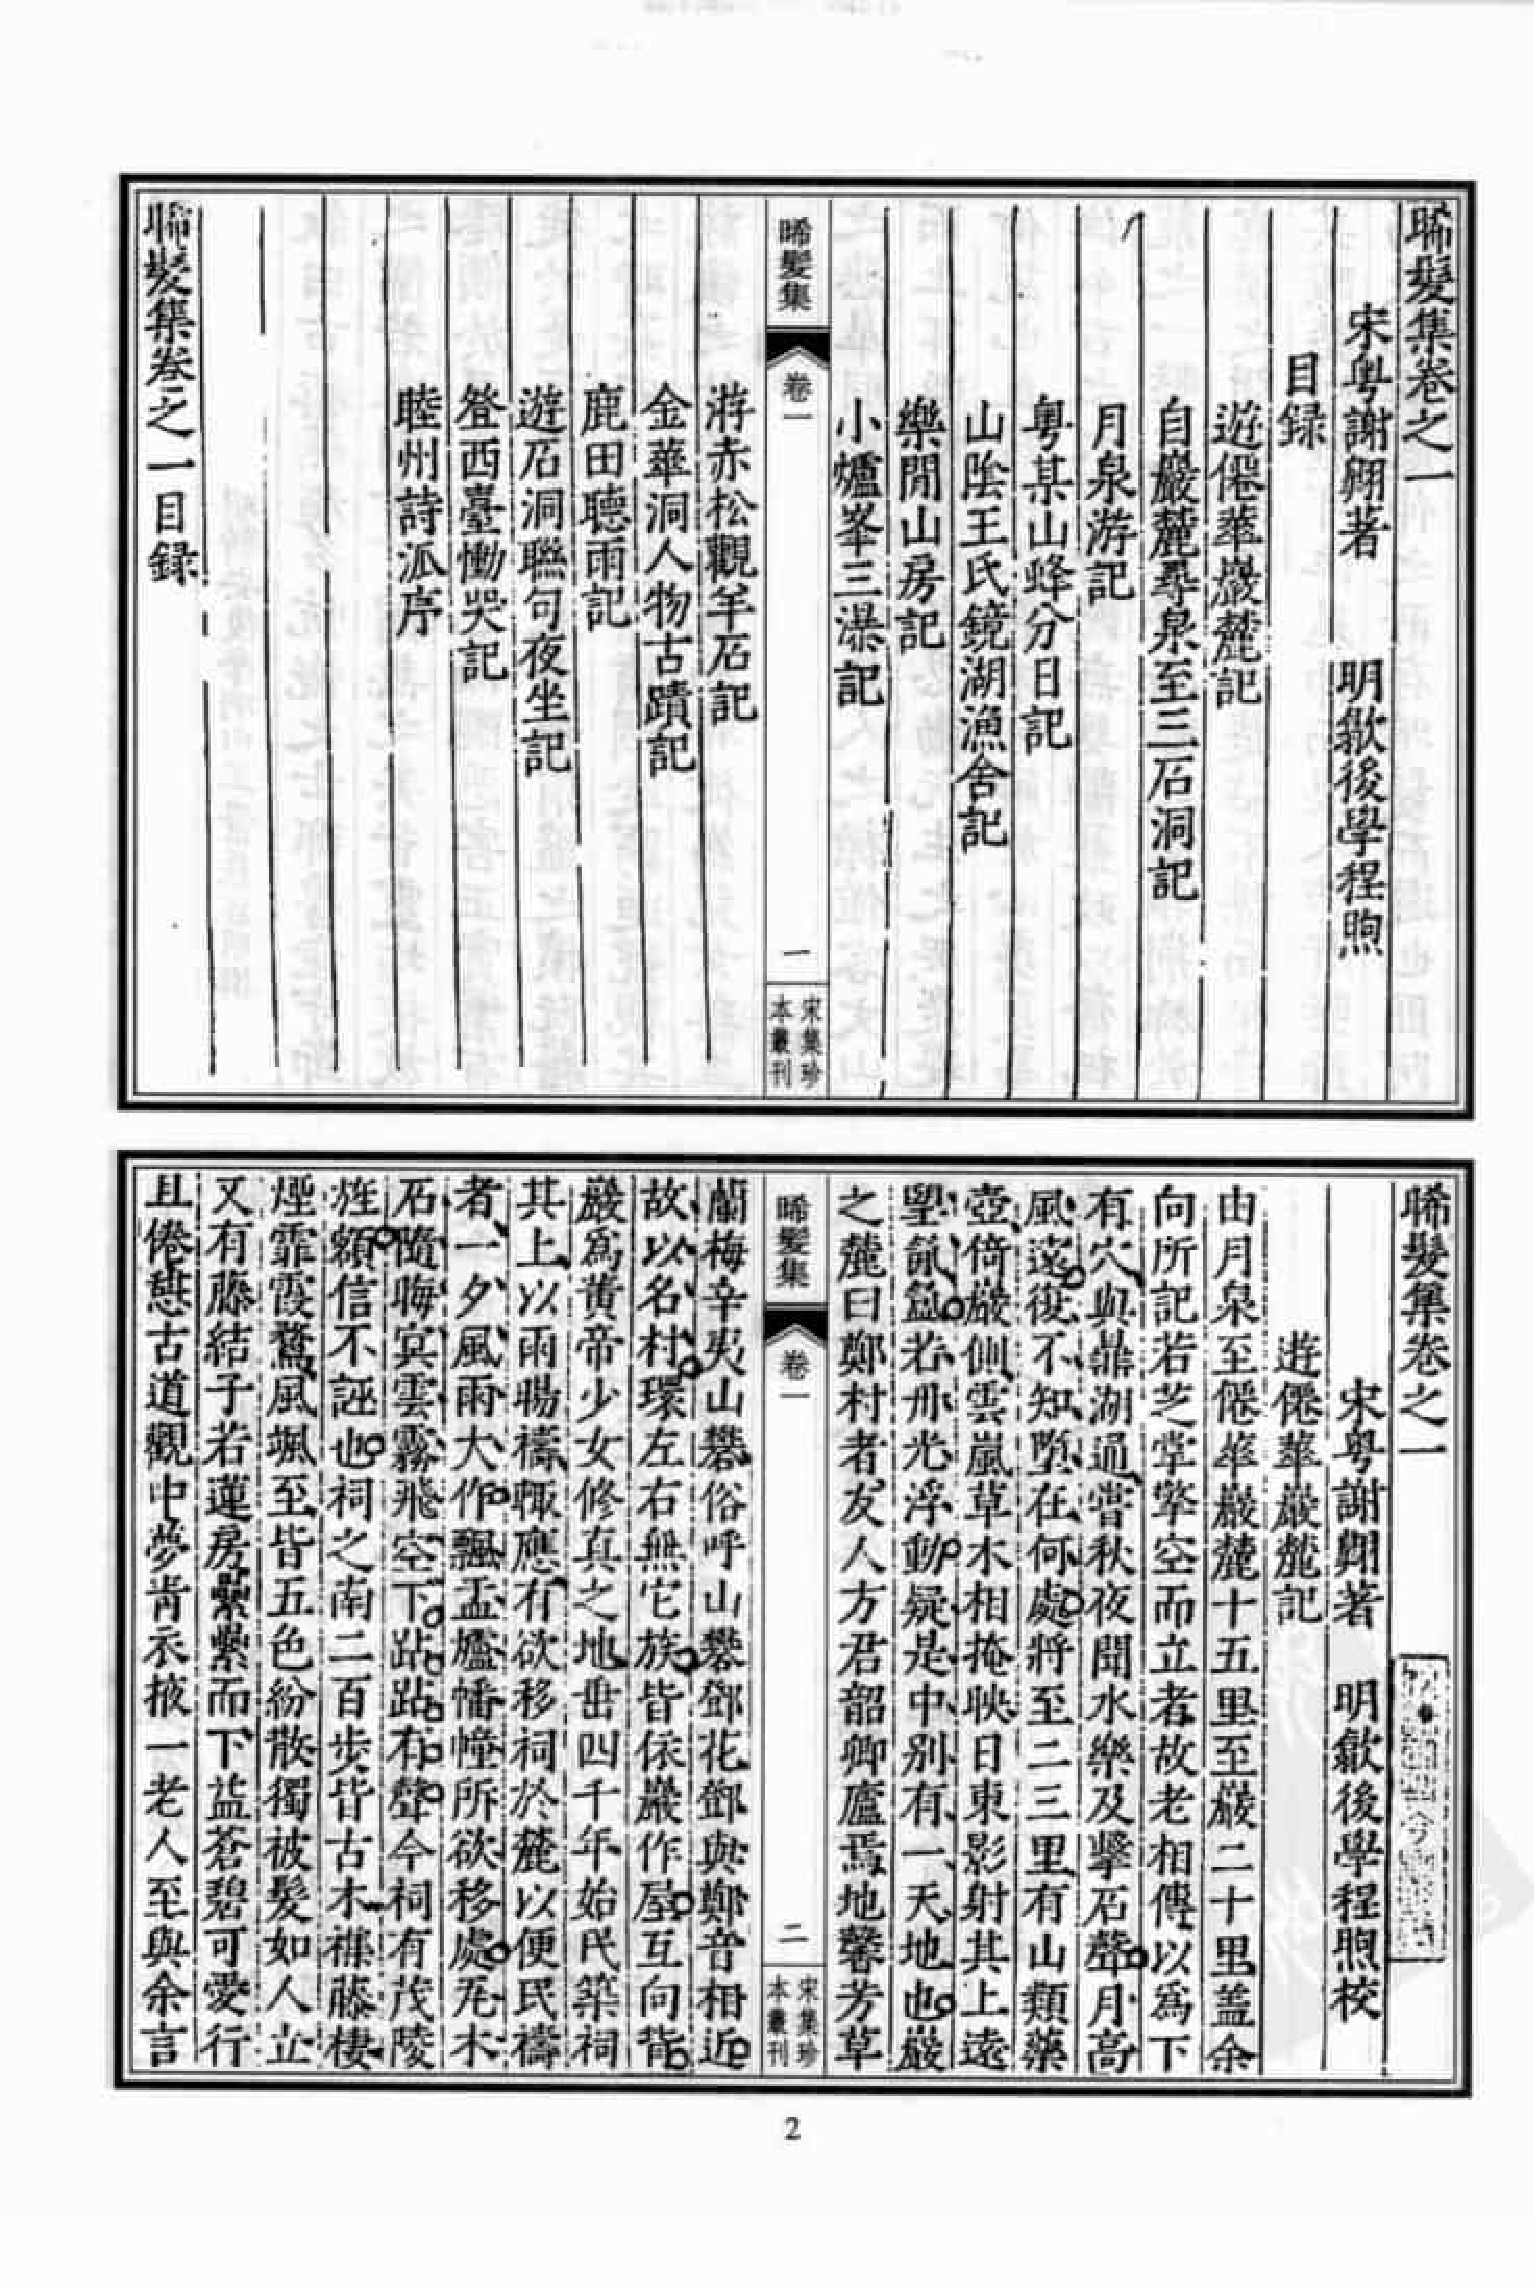 晞髮集卷之一
宋粤謝翱著　明歙後學程煦
目録
遊僊華巖麓記
自巖麓尋泉至三石洞記
月泉游記
粤某山蜂分日記
山陰王氏鏡湖漁舍記
樂閒山房記
小爐峯三瀑記
晞髮集
卷一
一
宋集珍
本叢刊
游赤松觀羊石記
金華洞人物古蹟記
鹿田聽雨記
遊石洞聯句夜坐記
登西臺慟哭記
睦州詩派序
晞髮集卷之一目録
晞髮集卷之一
宋粤謝翱著　明歙後學程煦校
遊僊華巖麓記
由月泉至僊華巖麓十五里至巖二十里盖余
向所記若芝掌擎空而立者故老相傳以爲下
有穴與鼎湖通嘗秋夜聞水樂及擊石聲月高
風遠復不知墮在何處將至二三里有山類藥
壺倚巖側雲嵐草木相掩映日東影射其上遠
望氤氳若丹光浮動疑是中別有一天地也巖
之麓曰鄭村者友人方君韶卿廬焉地馨芳草
晞髮集
卷一
二
宋集珍
本叢刊
蘭梅辛夷山礬俗呼山礬鄧花鄧與鄭音相近
故以名村環左右無它族皆依巖作屋互向背
巖爲黄帝少女修真之地歬四千年始民築祠
其上以雨暘禱輒應有欲移祠於麓以便民禱
者一夕風雨大作飄盂爐幡幢所欲移處旡木
石隨晦冥雲霧飛空下跕跕有聲今祠有茂陵
旌額信不誣也祠之南二百步皆古木襍藤棲
煙霏霞鶩風颯至皆五色紛散獨被髮如人立
又有藤結子若蓮房纍纍而下盐蒼碧可愛行
且倦憇古道觀中夢青衣掖一老人至與余言
2